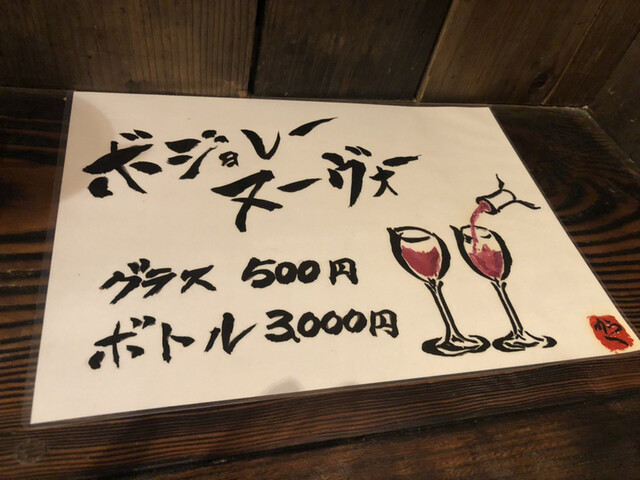 ボジョレー
ヌーヴォ
グラス 500円
ボトル 3,000円